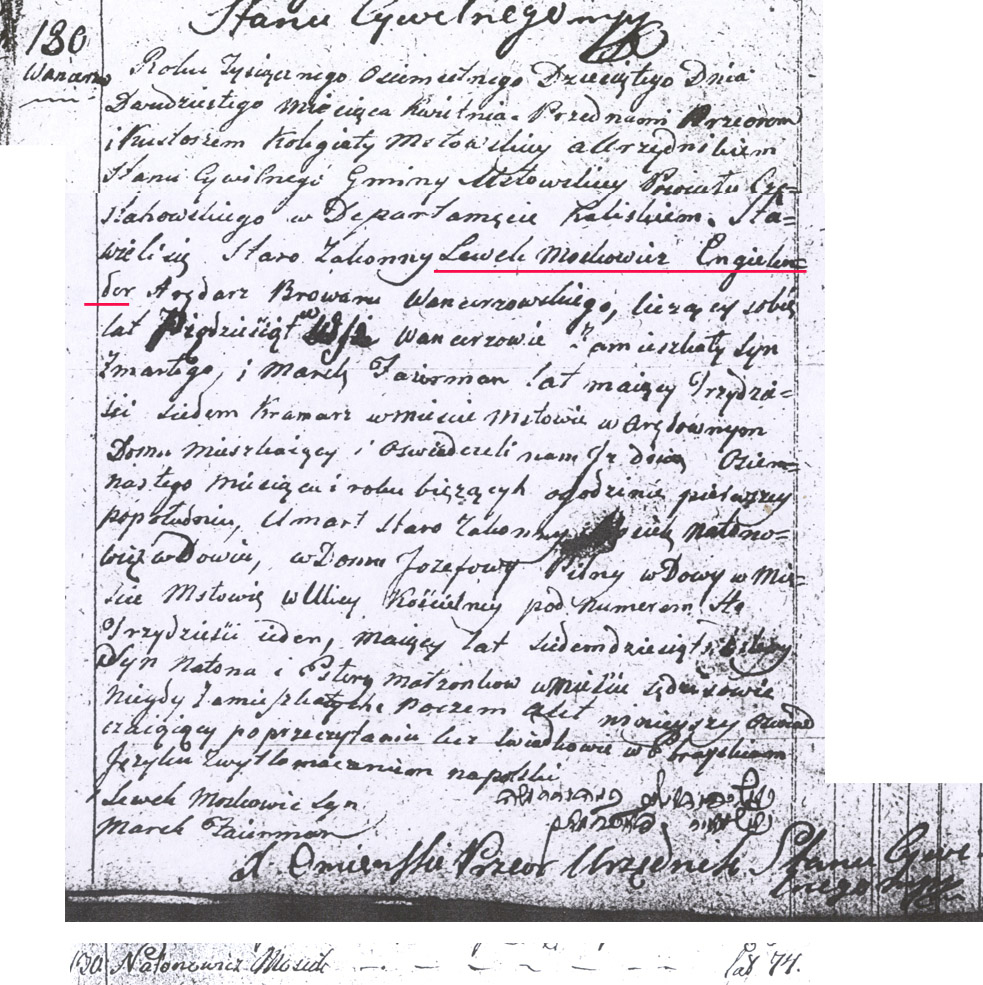 Stanu Cywilnego
130
Wancerzo
Roku Tysiącznego Ośmsetnego Dziesiątego Dnia
Dwudziestego Miesiąca Kwietnia. Przed nami Przeorem
i Kustoszem Kolegiaty Mstowskiey a Urzędnikiem
Stanu Cywilnego Gminy Mstowskiey Powiatu Czę=
stahowskiego w Departamęcie Kaliskiem. Sta=
wieli się Staro Zakonny Lewek Moskowicz Engielen=
der Arędarz Browaru Wancerzowskiego, liczący sobie
lat Piędziesiąt w Wsi Wancerzowie Zamieszkały Syn
Zmarłego, i Marek Zaierman lat maiący Trzydzie=
ści siedem Kramarz w mieście Mstowie w Arędownym
Domu Mieszkaiący i oświadczeli nam Iż dnia Osiem=
nastego miesiąca i roku bieżących o godzinie pierwszey
popołudniu, Umarł Staro Zakonny Natono=
wicz w Dowiec, w Domu Jozefowy Pilny w Dowy w Mie=
ście Mstowie w Ulicy Kościelney pod Numerem Sto
Trzydzieści ieden, maiący lat siedemdziesiąt i cztery
Syn Natona i Estery małżonkow w mieście
niegdy Zamieszkałych Poczem Akt ninieyszy Oswiad
czaiący po przeczytaniu lecz świadkowie w
Języku Zwytłomaczeniem na polski
Lewek Moskowic Syn
Marek Zaierman
X. Przeor Urzędnik Stanu Cywi=
lnego
130 Natonowicz Mosiek — — — — — — lat 74.